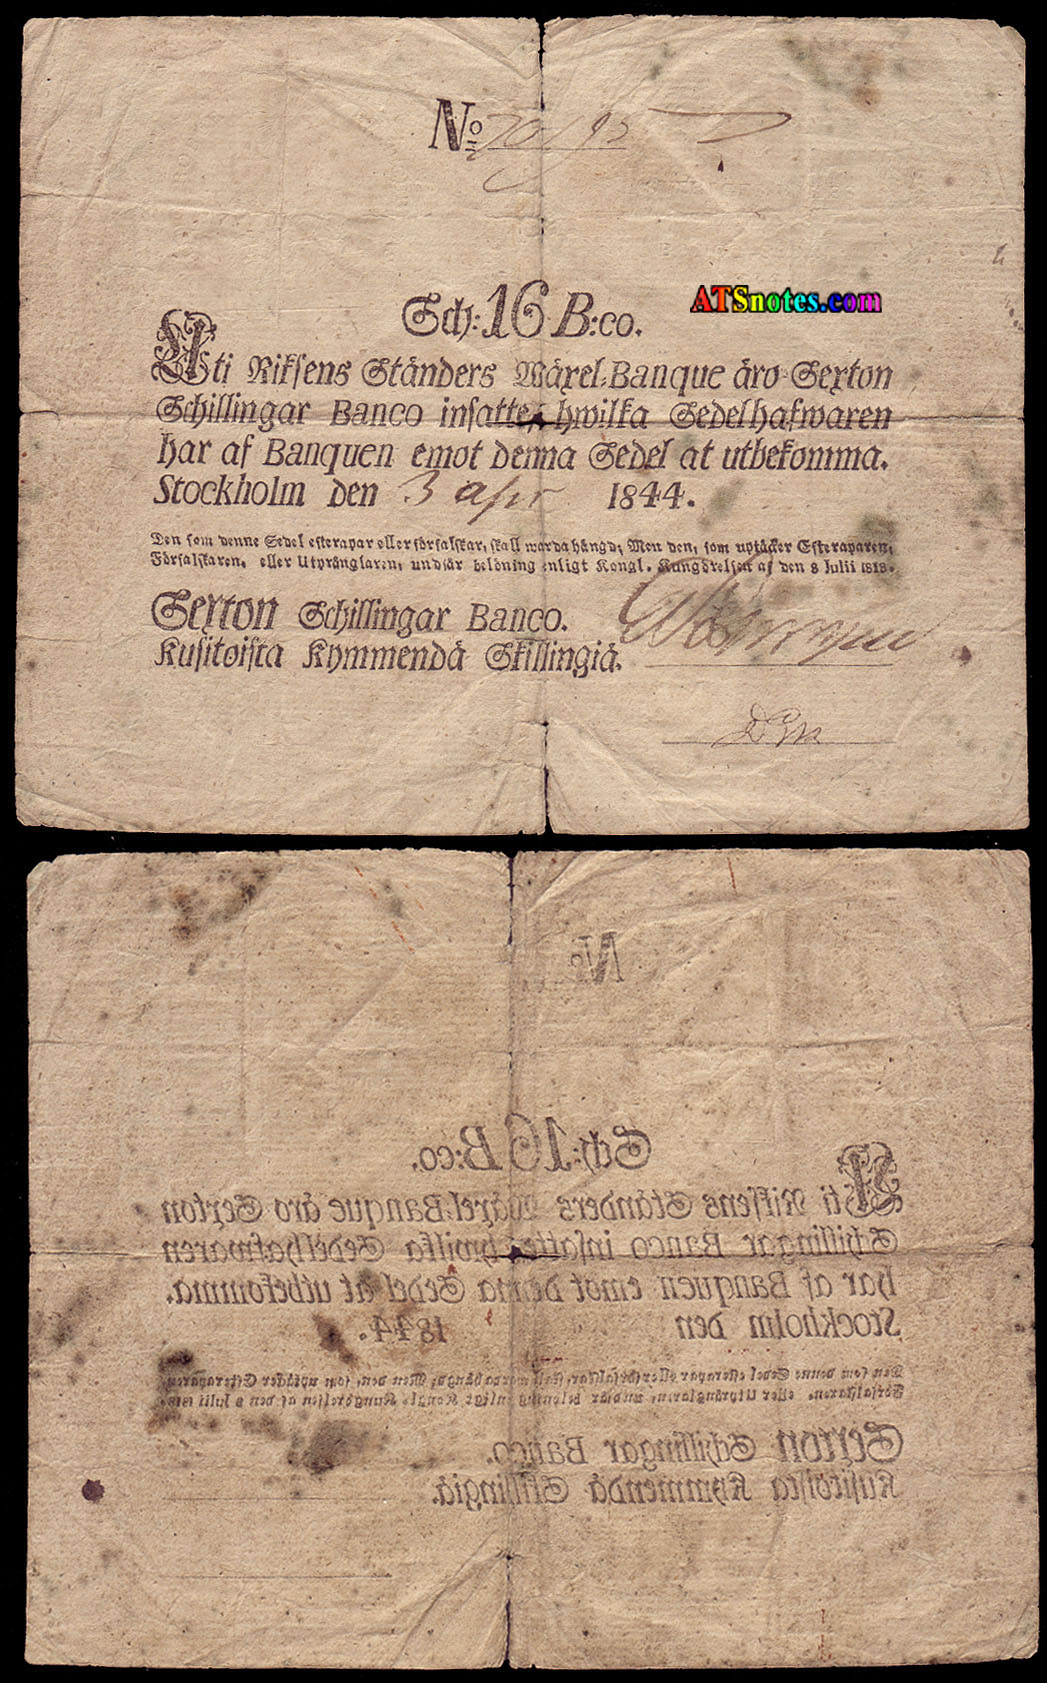 No 70195
Sch: 16 B:co.
ATSnotes.com
Uti Riksens Ständers Wäxel-Banque äro Sexton
Schillingar Banco insatte, hwilka Sedelhafwaren
har af Banquen emot denna Sedel at utbekomma.
Stockholm den 3 apr 1844.
Den som denne Sedel efterapar eller förfalskar, skall warda hängd; Men den, som uptäcker Efteraparen,
Förfalskaren, eller Utprånglaren, undfår belöning enligt Kongl. Kungörelsen af den 8 Julii 1818.
Sexton Schillingar Banco.
Kusitoista Kymmendä Skillingiä.
No
Sch: 16 B:co.
Uti Riksens Ständers Wäxel-Banque äro Sexton
Schillingar Banco insatte, hwilka Sedelhafwaren
har af Banquen emot denna Sedel at utbekomma.
Stockholm den 1844.
Den som denne Sedel efterapar eller förfalskar, skall warda hängd; Men den, som uptäcker Efteraparen,
Förfalskaren, eller Utprånglaren, undfår belöning enligt Kongl. Kungörelsen af den 8 Julii 1818.
Sexton Schillingar Banco.
Kusitoista Kymmendä Skillingiä.